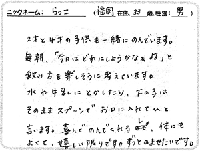 ニックネーム: うっこ (福岡 在住 33 歳 性別: 男)
2才と4才の子供も一緒にのんでいます。
毎朝、「今日はどれにしようかなぁ」と
飲み方を楽しそうに考えています。
水や牛乳にとかしたり、たまに
そのままスプーンでお口に入れていと
言います。喜んでのんでくれるし、体にも
よくて、嬉しい限りですのでずっとのませたいです。